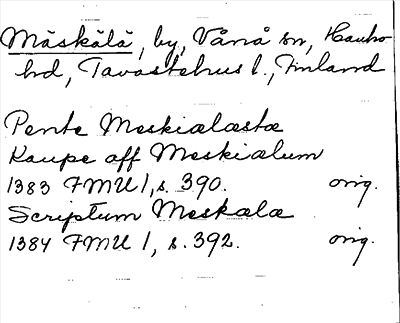 Mäskälä, by, Vånå sn, Hauho
hd, Tavastehus l., Finland
Pente Meskiælæstæ
Kaupe aff Meskiælum
1383 FMU 1, s. 390. orig.
Scriptum Meskælæ
1384 FMU 1, s. 392. orig.